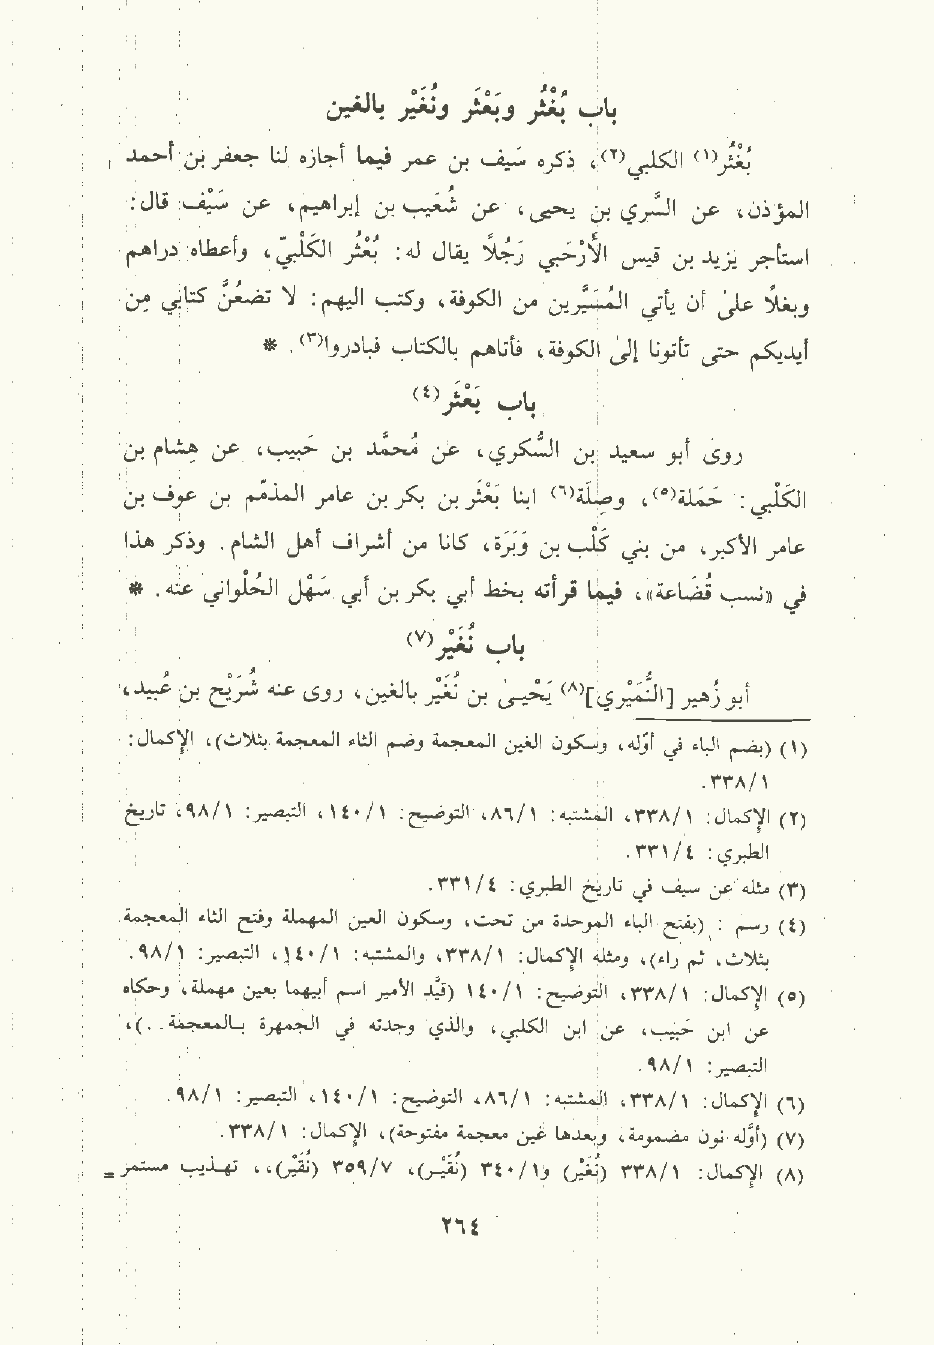 باب بُغْثُر وبَعْثَر ونُغَيْر بالغين
بُغْثُر(١) الكلبي(٢)، ذكره سَيف بن عمر فيما أجازه لنا جعفر بن أحمد
المؤذن، عن السَّري بن يحيى، عن شُعَيب بن إبراهيم، عن سَيْف قال:
استأجر يزيد بن قيس الأَرْحَبيي رَجُلاً يقال له: بُغْثُر الكَلْبيّ، وأعطاه دراهم
وبغلاً على أن يأتي المُسَيَّرين من الكوفة، وكتب اليهم: لا تضعُنَّ كتابي مِن
أيديكم حتى تأتونا إلى الكوفة، فأتاهم بالكتاب فبادروا(٣). *
باب بَعْثَر(٤)
روىٰ أبو سعيد بن السُّكري، عن مُحمَّد بن حَبيب، عن هِشام بن
الكَلْبي: حَمَلة(٥)، وصِلَة(٦) ابنا بَعْثَر بن بكر بن عامر المذمّم بن عوف بن
عامر الأكبر، من بني كَلْب بن وَبَرَة، كانا من أشراف أهل الشام. وذكر هذا
في «نسب قُضَاعة»، فيما قرأته بخط أبي بكر بن أبي سَهْل الحُلْواني عنه. *
باب نُغَيْر(٧)
أبو زُهير [النُّمَيْري](٨) يَحْيـىٰ بن نُغَيْر بالغين، روى عنه شُرَيْح بن عُبيد،
(١) (بضم الباء في أوّله، وسكون الغين المعجمة وضم الثاء المعجمة بثلاث)، الإكمال:
٣٣٨/١.
(٢) الإكمال: ٣٣٨/١، المشتبه: ٨٦/١، التوضيح: ١٤٠/١، التبصير: ٩٨/١، تاريخ
الطبري: ٣٣١/٤.
(٣) مثله عن سيف في تاريخ الطبري: ٣٣١/٤.
(٤) رسم : (بفتح الباء الموحدة من تحت، وسكون العين المهملة وفتح الثاء المعجمة
بثلاث، ثم راء)، ومثله الإكمال: ٣٣٨/١، والمشتبه: ١٤٠/١، التبصير: ٩٨/١.
(٥) الإكمال: ٣٣٨/١، التوضيح: ١٤٠/١ (قيَّد الأمير اسم أبيهما بعين مهملة، وحكاه
عن ابن حَبيب، عن ابن الكلبي، والذي وجدته في الجمهرة بـالمعجمة..)،
التبصير: ٩٨/١.
(٦) الإكمال: ٣٣٨/١، المشتبه: ٨٦/١، التوضيح: ١٤٠/١، التبصير: ٩٨/١.
(٧) (أوَّله نون مضمومة، وبعدها غين معجمة مفتوحة)، الإكمال: ٣٣٨/١.
(٨) الإكمال: ٣٣٨/١ (نُغَيْر) و٣٤٠/١ (نُفَيْـر)، ٣٥٩/٧ (نُقَيْر)،، تهـذيب مستمر =
٢٦٤